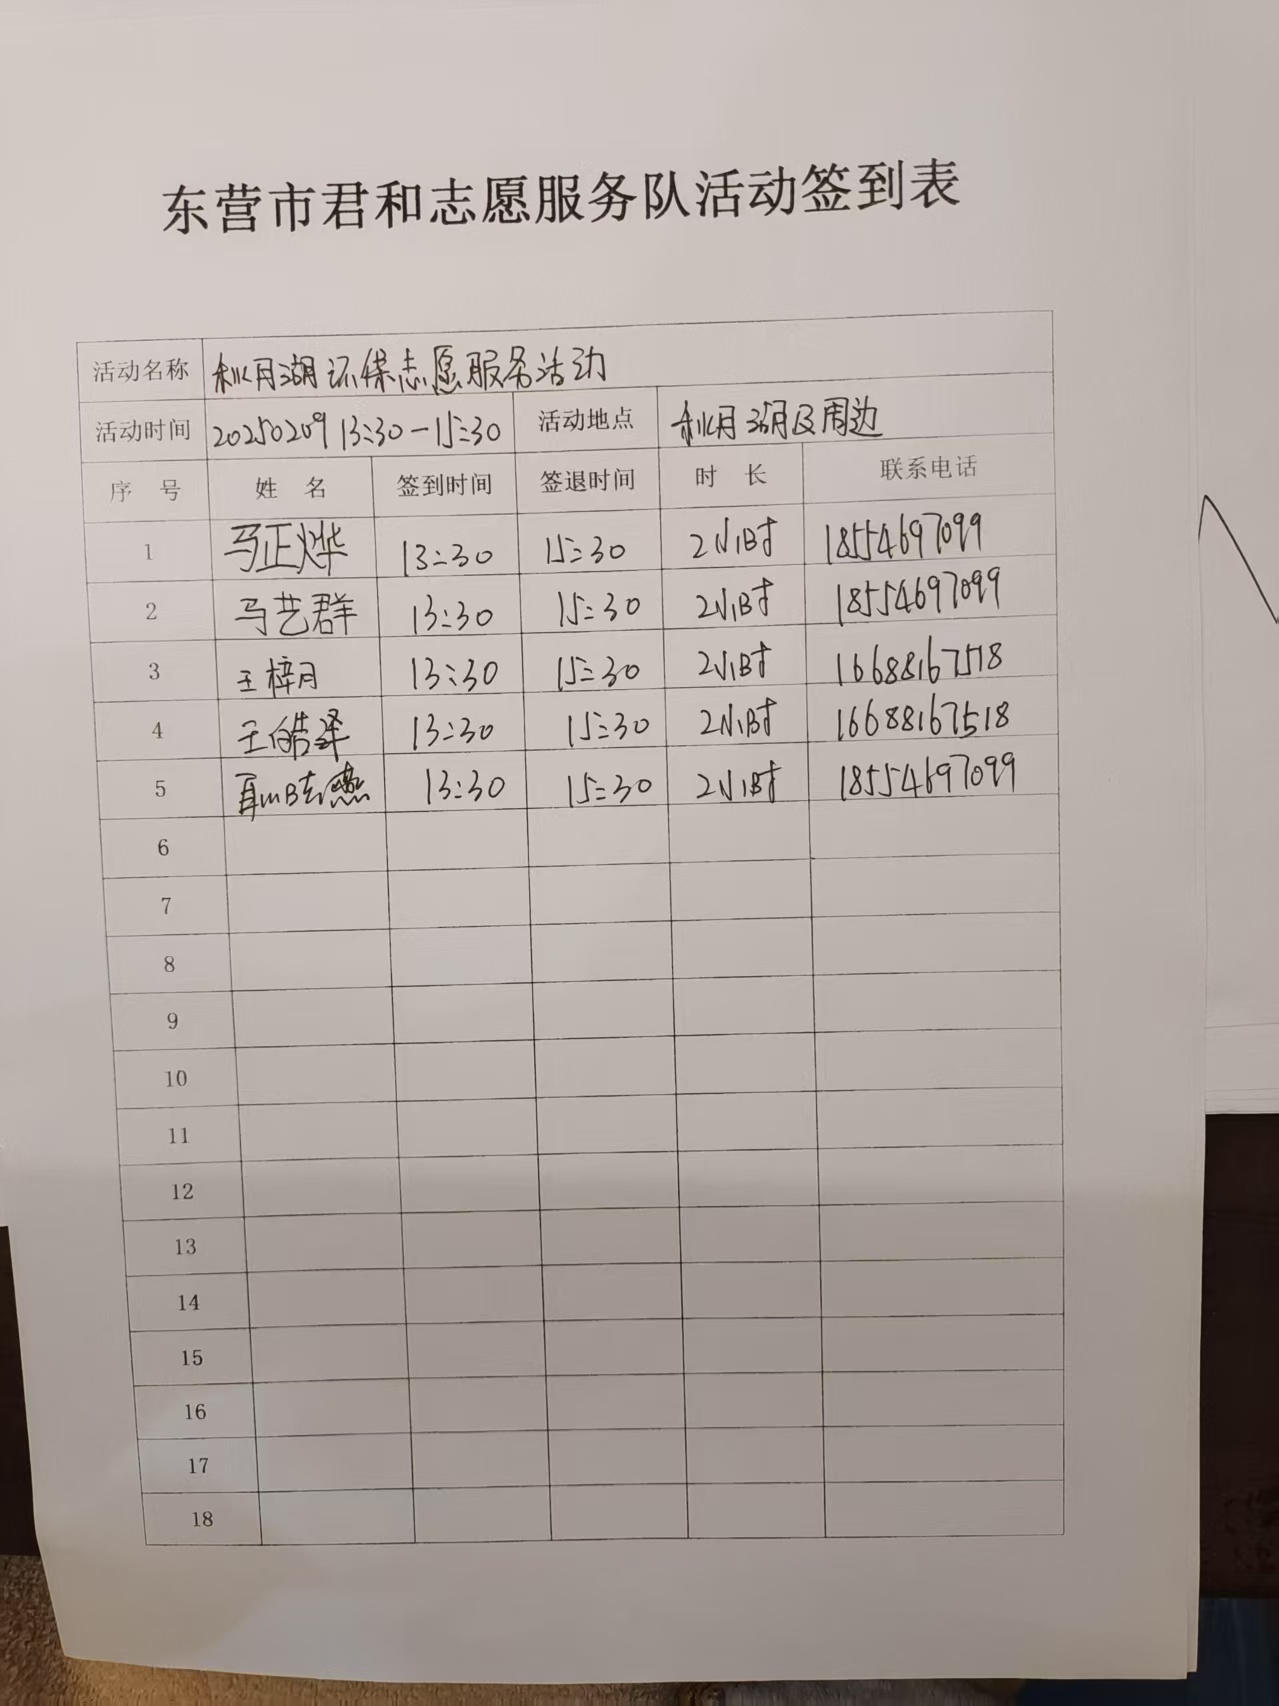 东营市君和志愿服务队活动签到表
活动名称 秋月湖环保志愿服务活动
活动时间 20250209 13:30-15:30 活动地点 秋月湖及周边
序 号 姓 名 签到时间 签退时间 时 长 联系电话
1 马正烨 13:30 15:30 2小时 18554697099
2 马艺群 13:30 15:30 2小时 18554697099
3 王梓月 13:30 15:30 2小时 16688167518
4 王皓泽 13:30 15:30 2小时 16688167518
5 13:30 15:30 2小时 18554697099
6
7
8
9
10
11
12
13
14
15
16
17
18